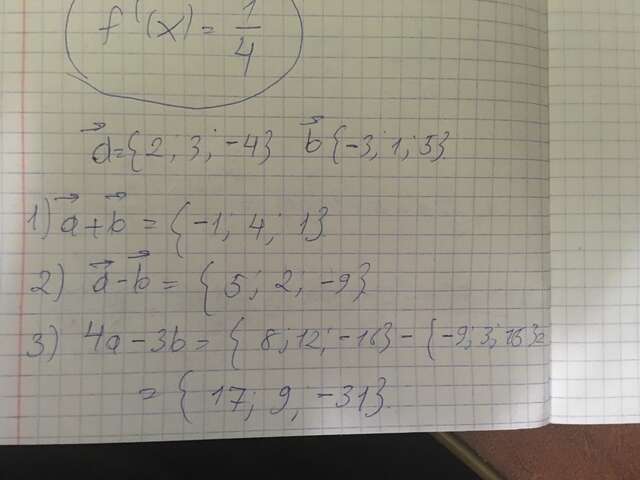 f'(x) = 1/4
a⃗={2; 3; -4} b⃗{-3; 1; 5}
1) a⃗+b⃗ = {-1; 4; 1}
2) a⃗-b⃗ = {5; 2; -9}
3) 4a-3b = {8; 12; -16} - {-9; 3; 15}=
= {17; 9; -31}